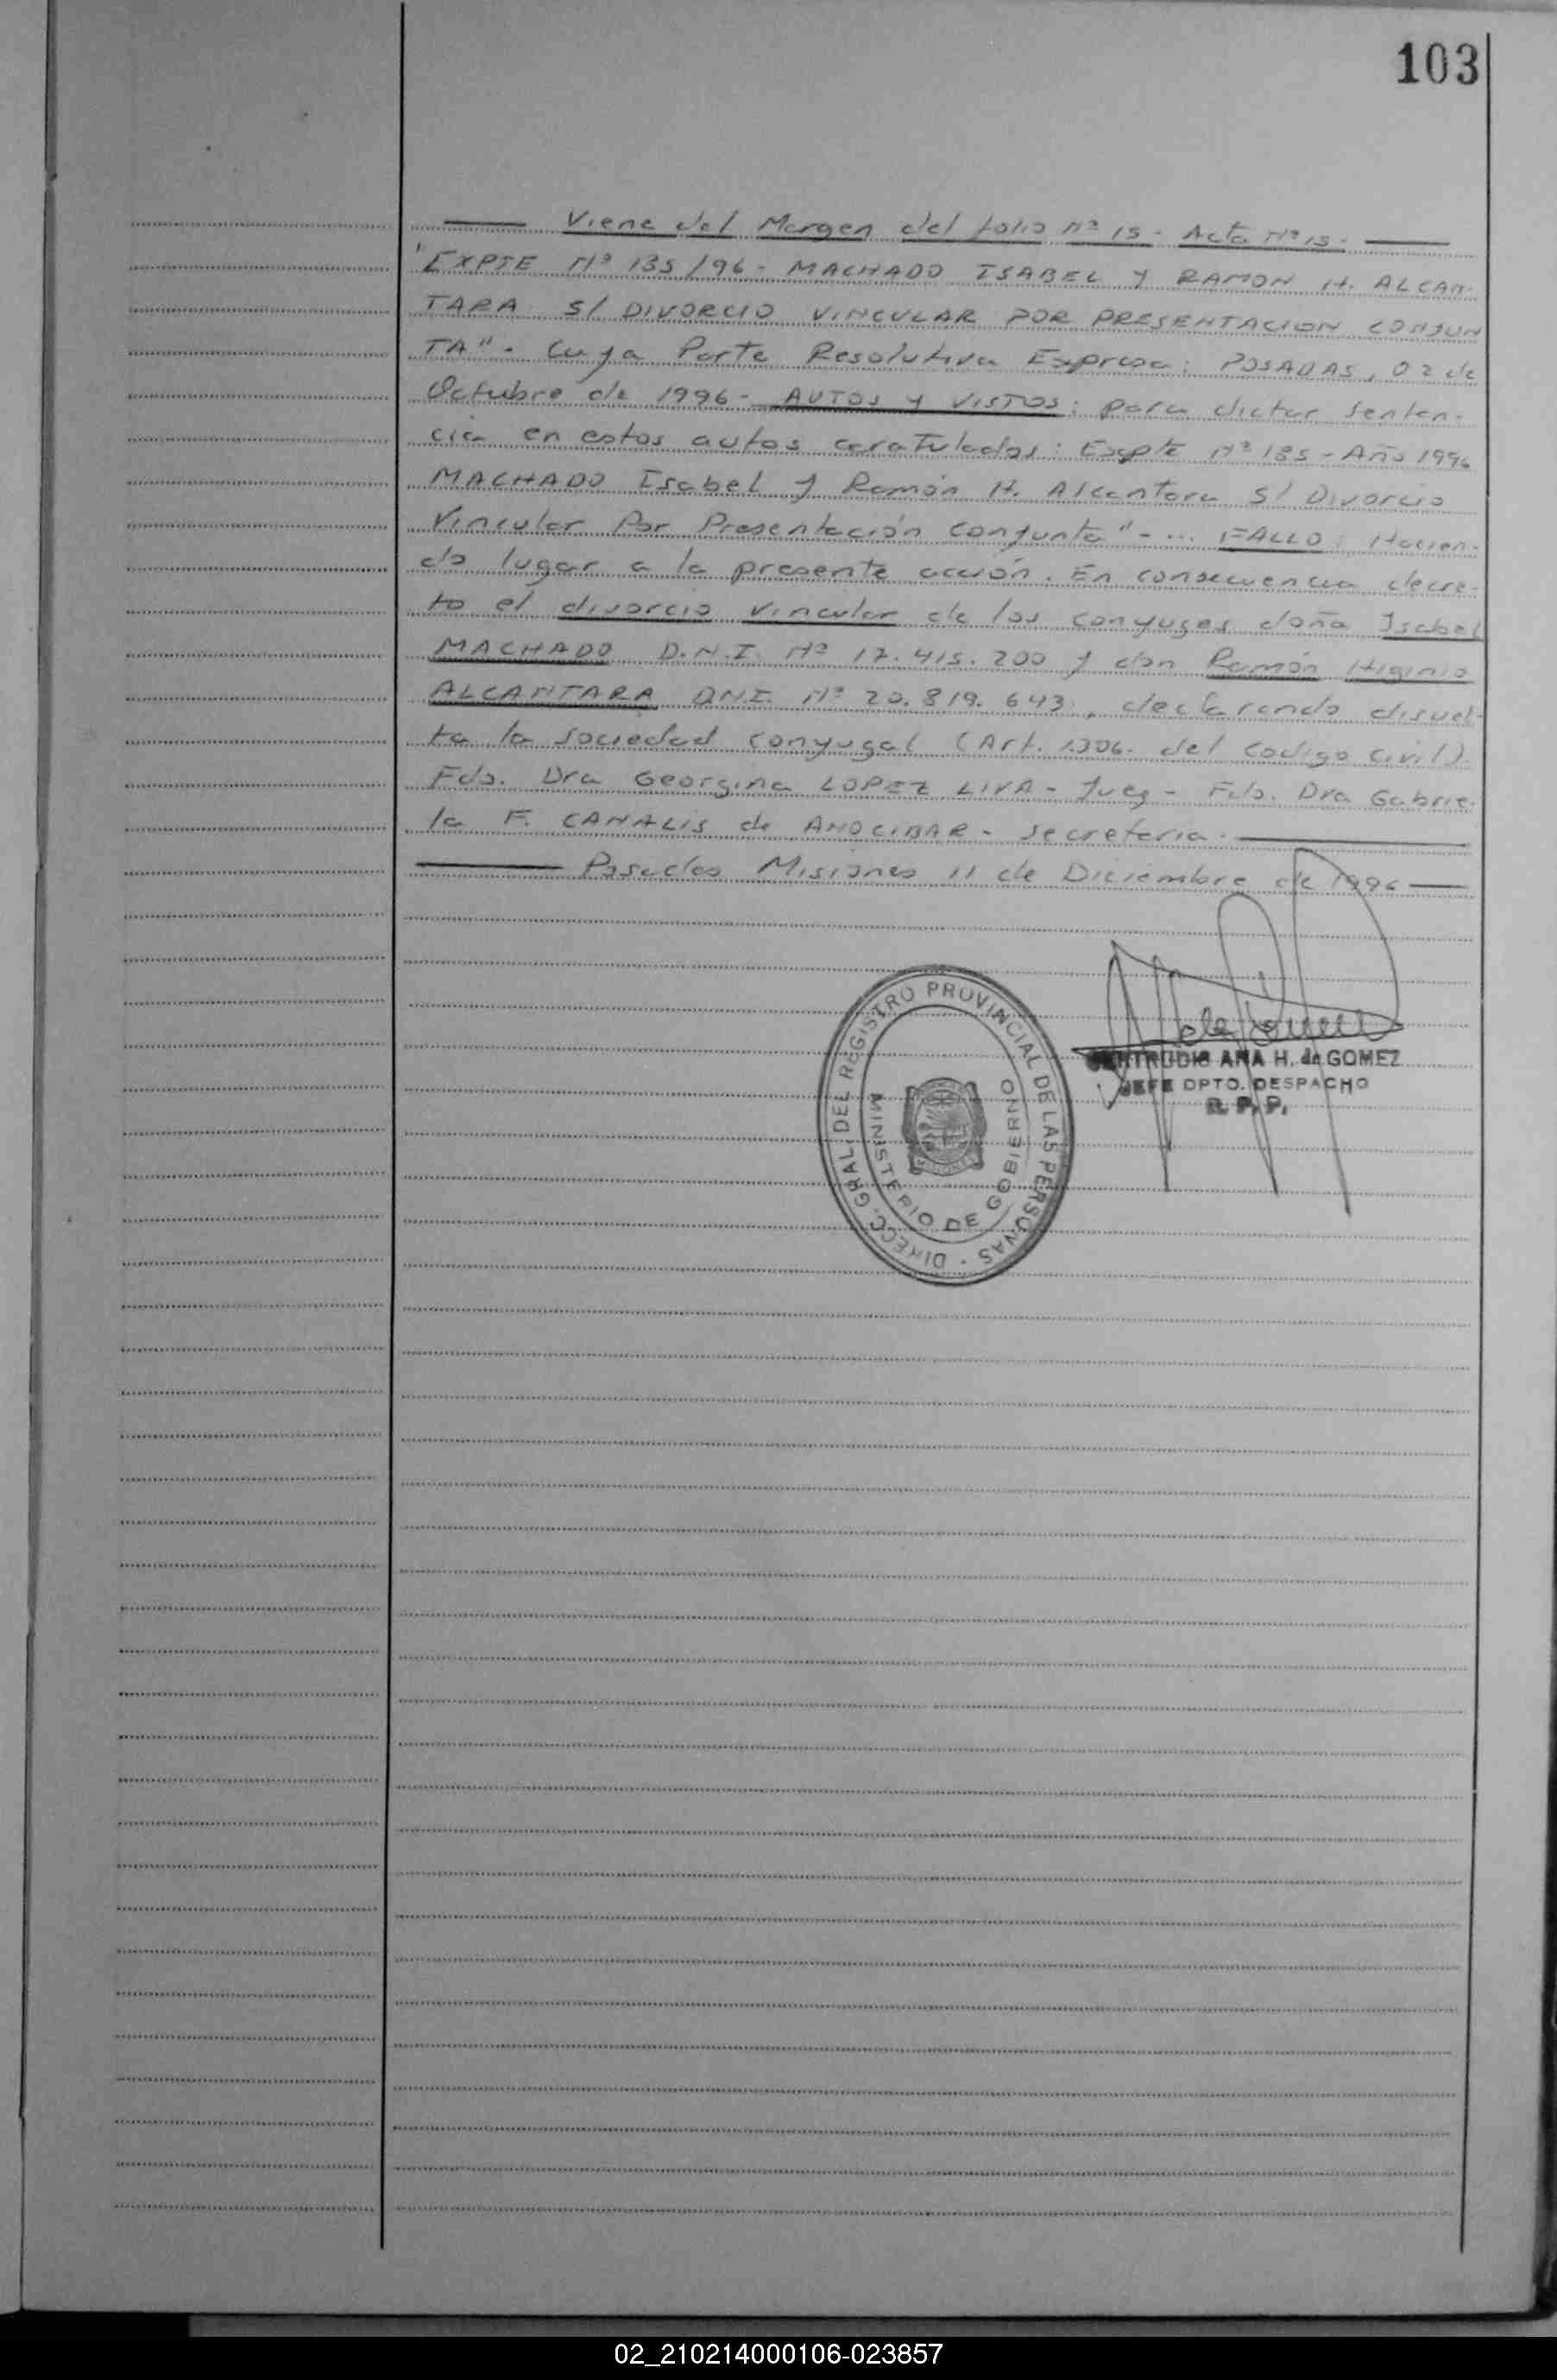 103
Viene del Margen del folio Nº 15 - Acta Nº 15.
"EXPTE Nº 135/96 - MACHADO ISABEL Y RAMON H. ALCAN-
TARA S/ DIVORCIO VINCULAR POR PRESENTACION CONJUN
TA" - Cuya Parte Resolutiva Expresa: POSADAS, 02 de
Octubre de 1996 - AUTOS Y VISTOS: para dictar senten-
cia en estos autos caratulados: Expte Nº 135 - Año 1996
MACHADO Isabel y Ramón H. Alcantara S/ Divorcio
Vincular Por Presentación Conjunta" - ... FALLO: Hacien-
do lugar a la presente acción. En consecuencia decre-
to el divorcio vincular de los conyuges doña Isabel
MACHADO D.N.I. Nº 17.415.200 y don Ramón Higinio
ALCANTARA D.N.I. Nº 20.819.643., declarando disuel-
ta la sociedad conyugal (Art. 1306. del codigo civil).
Fdo. Dra Georgina LOPEZ LIVA - Juez - Fdo. Dra Gabrie-
la F. CANALIS de ANOCIBAR - Secretaria.
Posadas Misiones 11 de Diciembre de 1996
DIRECC. GRAL. DEL REGISTRO PROVINCIAL DE LAS PERSONAS
MINISTERIO DE GOBIERNO
GERTRUDIS ANA H. de GOMEZ
JEFE DPTO. DESPACHO
R. P. P.
02_210214000106-023857